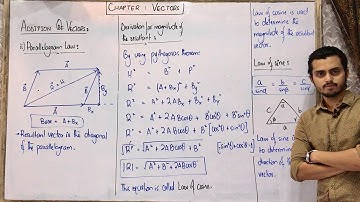 CHAPTER 1 VECTORS
ADDITION OF VECTORS
ii) Parallelogram Law:
Base = A + Bx
→ Resultant vector is the diagonal
of the parallelogram.
Derivation for magnitude of
the resultant:
By using pythagoras theorem:
H² = B² + P²
R² = (A+Bx)² + By²
R² = A² + 2ABx + Bx² + By²
R² = A² + 2ABcosθ + B²cos²θ + B²sin²θ
R² = A² + 2ABcosθ + B² (cos²θ + sin²θ)
√R² = √A² + 2ABcosθ + B²
|R| = √A² + B² + 2ABcosθ
This equation is called Law of Cosine.
Law of cosine is used
to determine the
magnitude of the resultant
vector.
Law of sine:
Law of sine
to determine
direction of
vector.